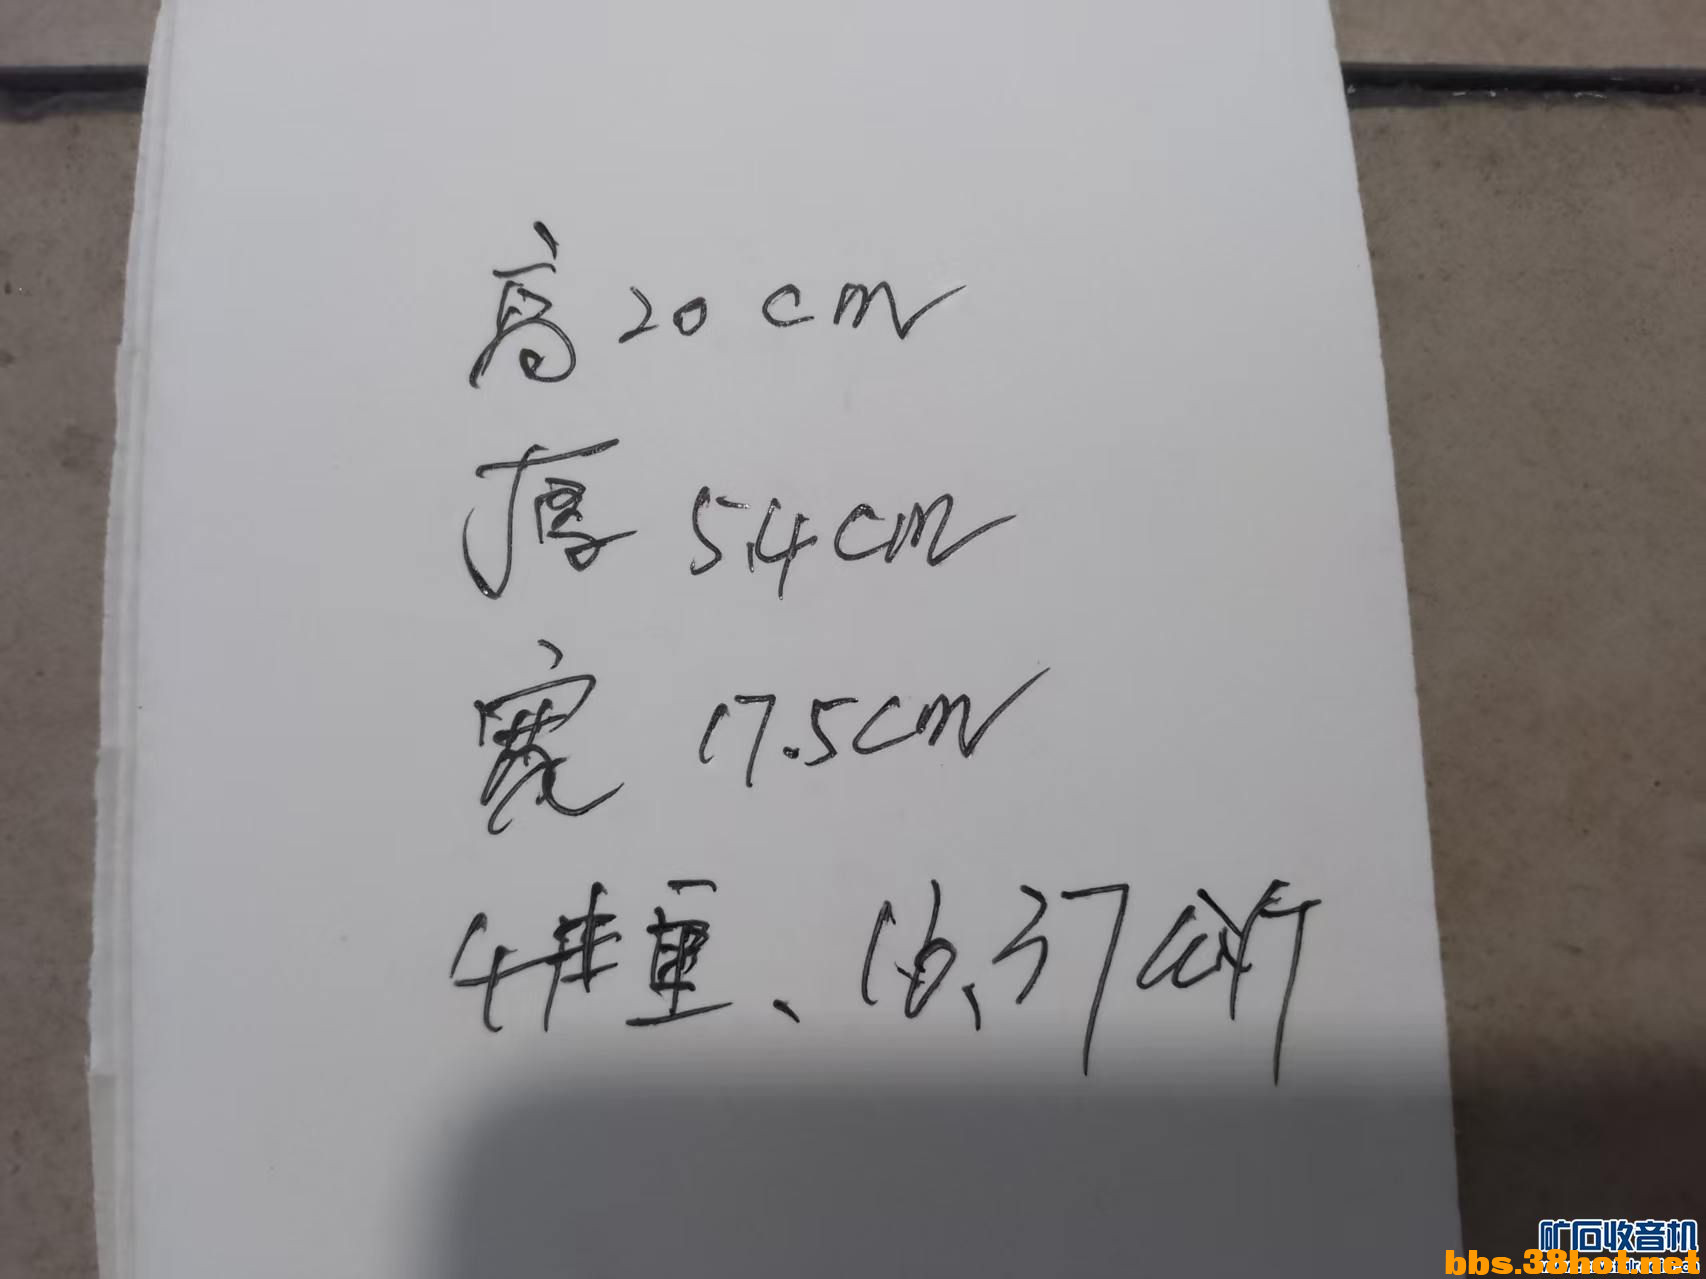 高20cm
厚5.4cm
宽17.5cm
体重、16.37公斤
矿石收音机
bbs.38hot.net